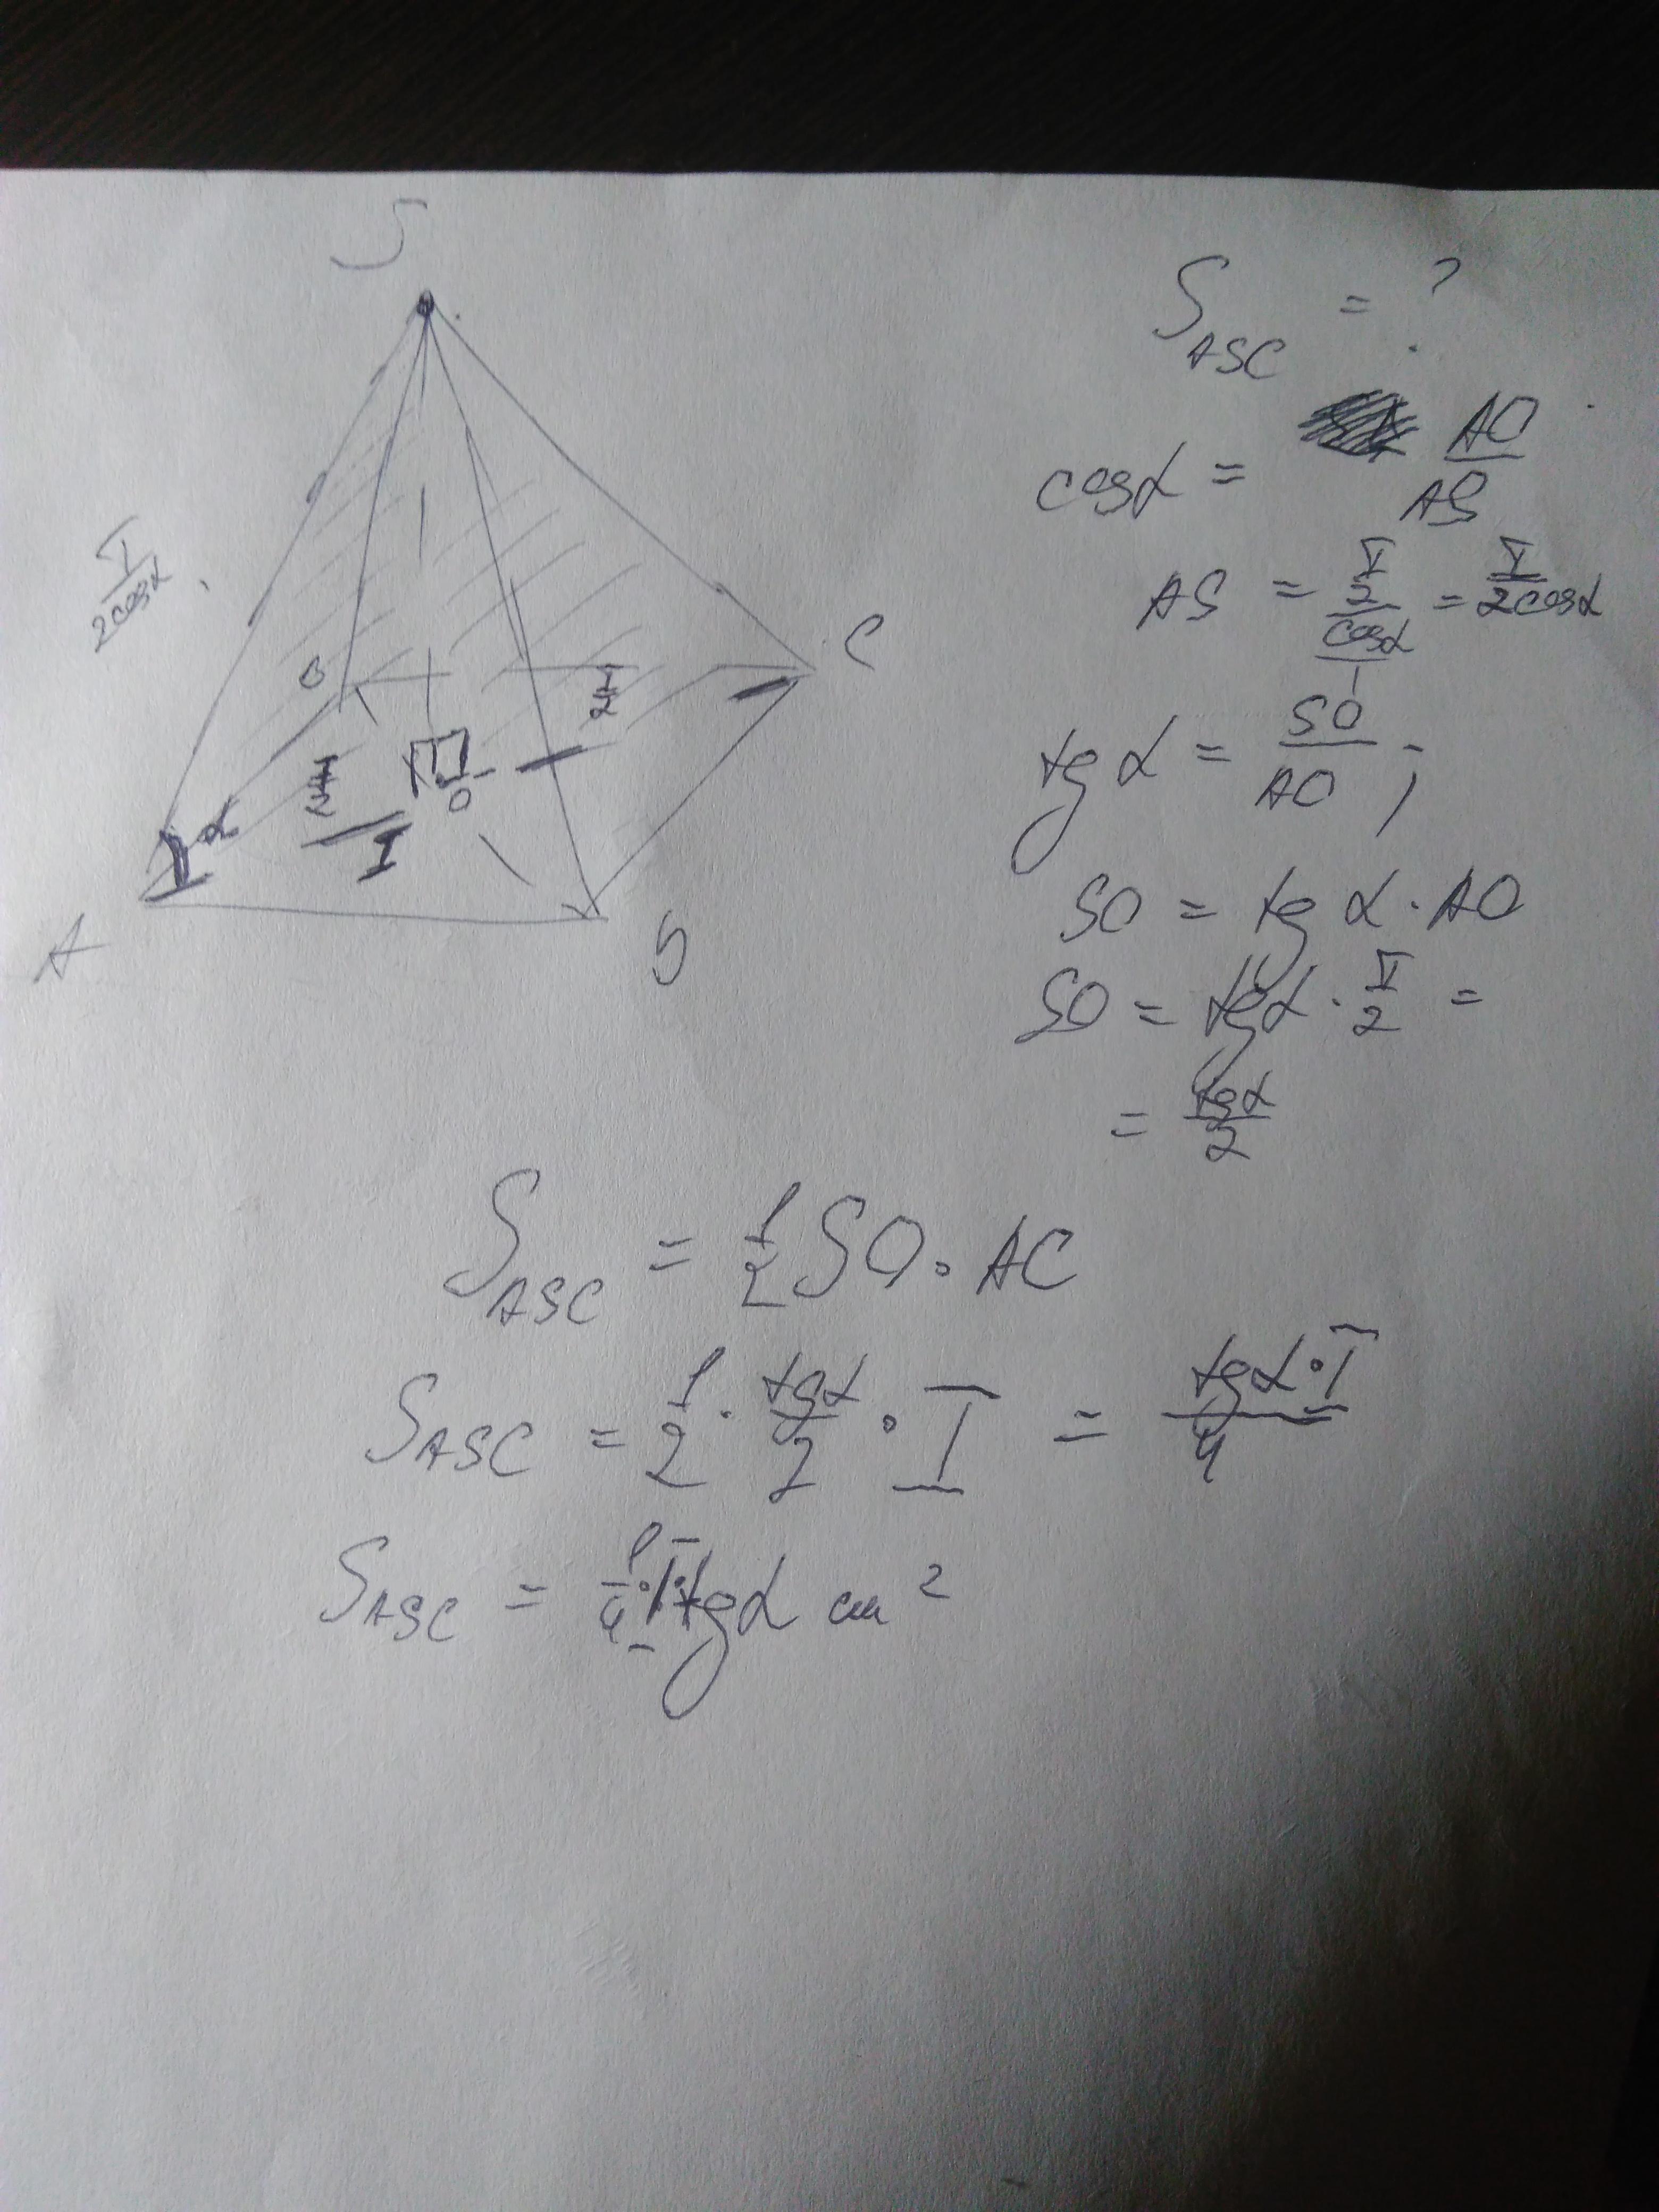 S
I/2cosα
B
C
I/2
I/2
O
α
I
A
D
S_ASC = ?
cosα = AO/AS
AS = (I/2)/cosα = I/2cosα
tg α = SO/AO ;
SO = tg α · AO
SO = tgα · I/2 =
= tgα/2
S_ASC = 1/2 SO · AC
S_ASC = 1/2 · tgα/2 · I = tgα·I/4
S_ASC = 1/4 · I · tgα см²